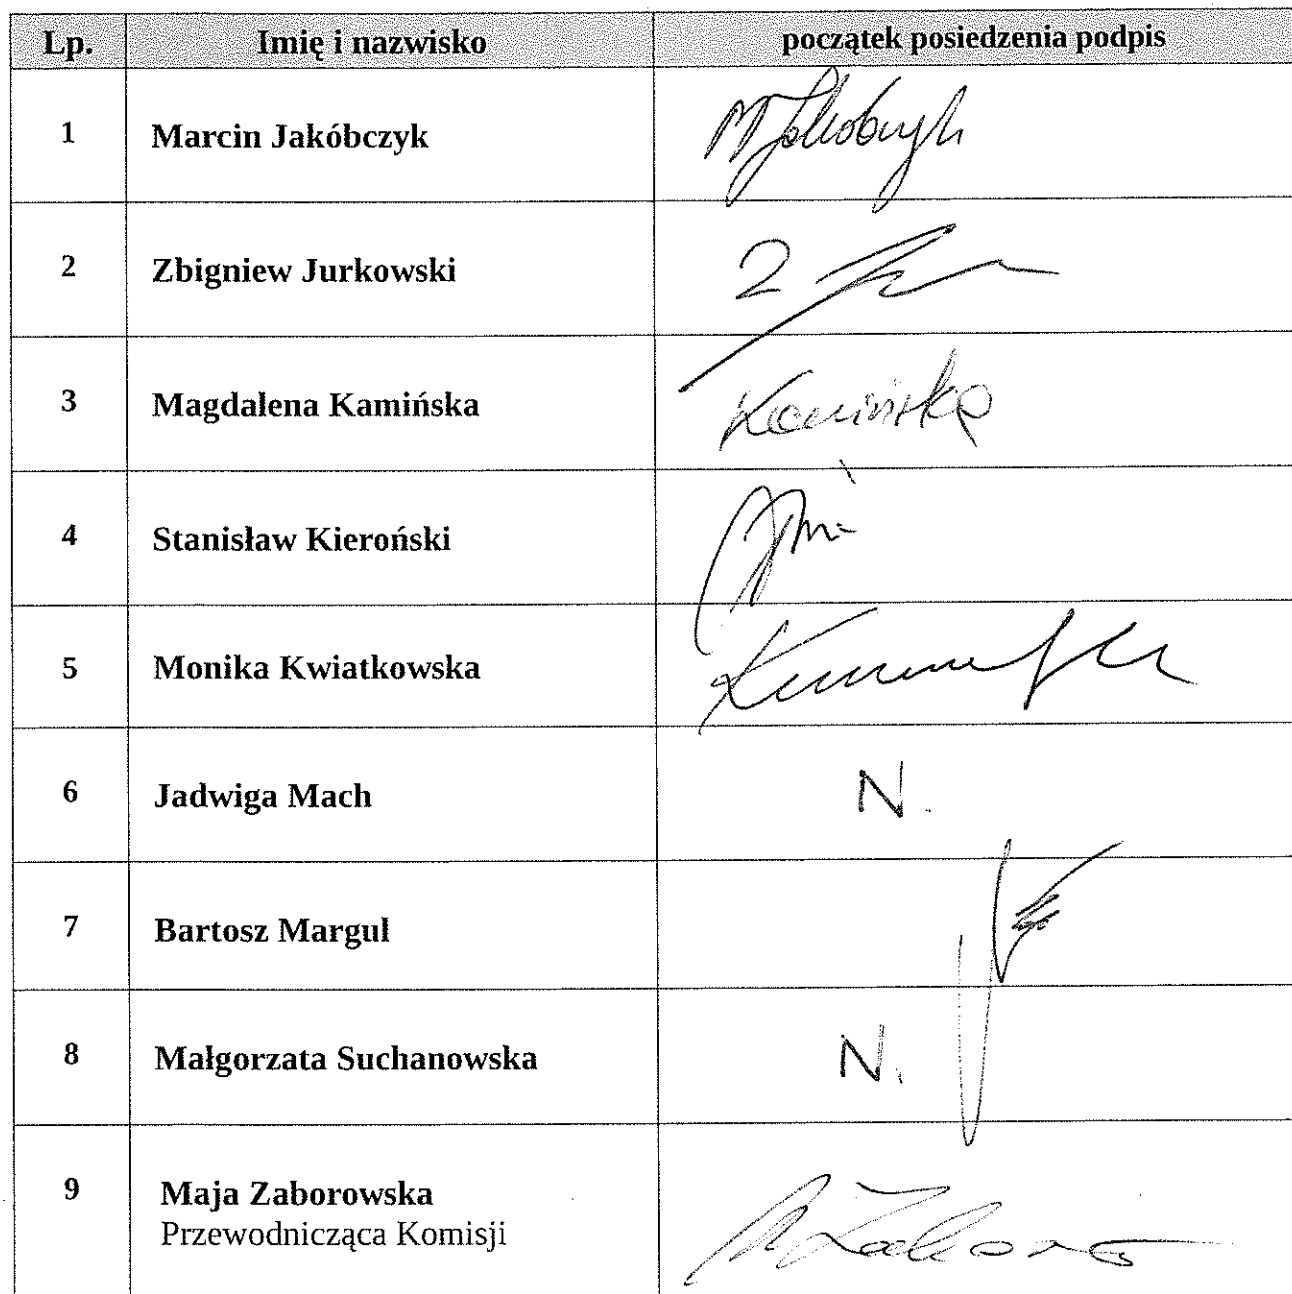 Lp. Imię i nazwisko początek posiedzenia podpis
1 Marcin Jakóbczyk
2 Zbigniew Jurkowski
3 Magdalena Kamińska Kamińska
4 Stanisław Kieroński
5 Monika Kwiatkowska
6 Jadwiga Mach N.
7 Bartosz Margul
8 Małgorzata Suchanowska N.
9 Maja Zaborowska
Przewodnicząca Komisji